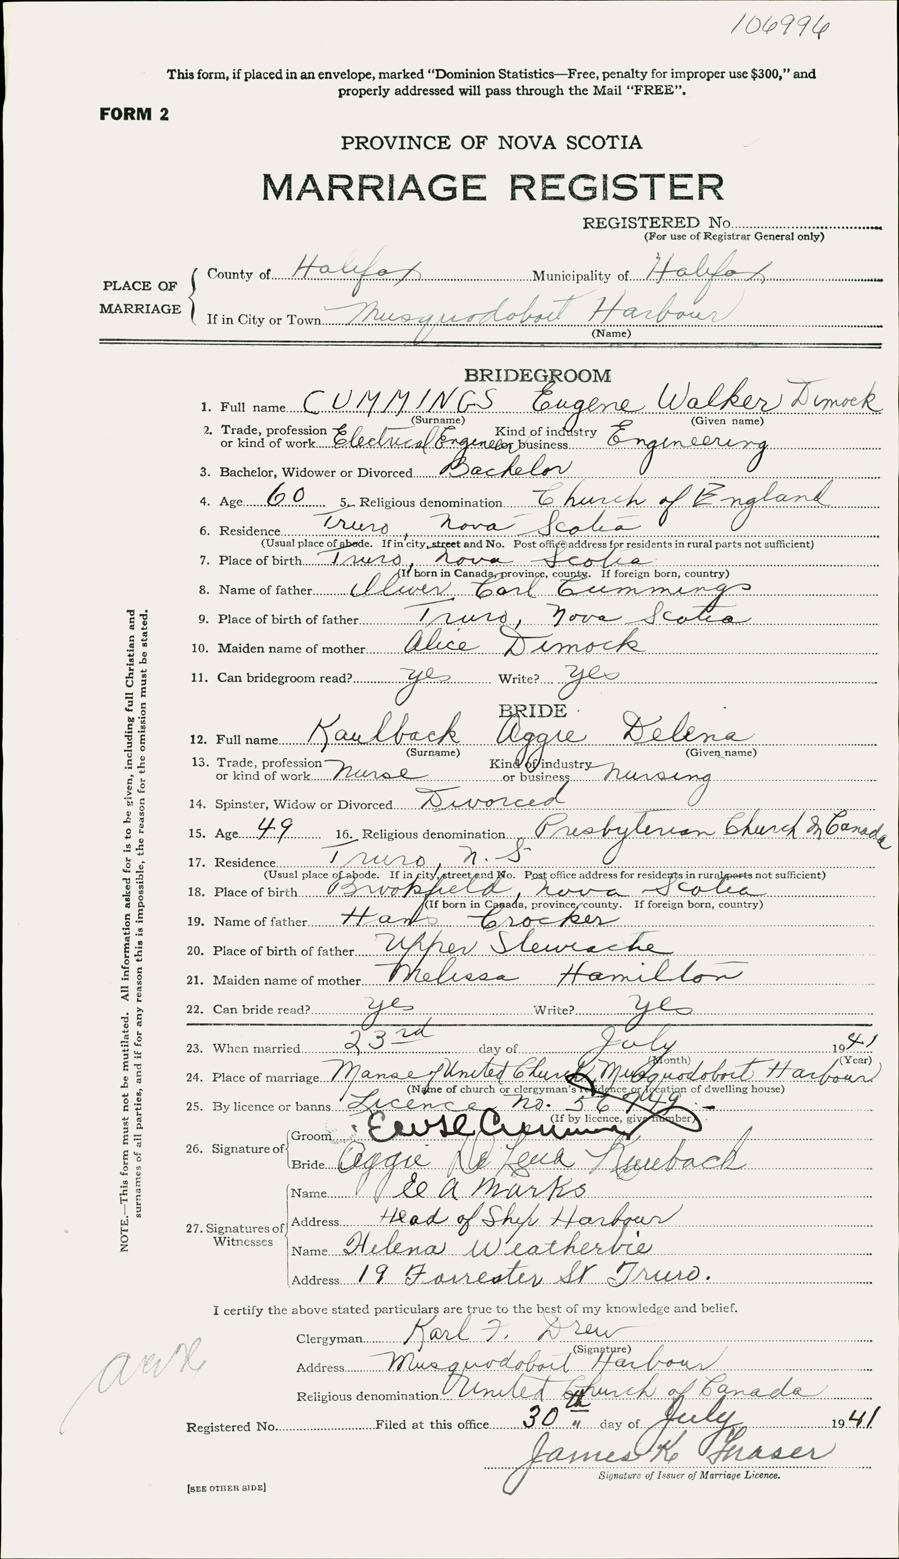 106996
This form, if placed in an envelope, marked “Dominion Statistics—Free, penalty for improper use $300,” and
properly addressed will pass through the Mail “FREE”.
FORM 2
PROVINCE OF NOVA SCOTIA
MARRIAGE REGISTER
REGISTERED No.
(For use of Registrar General only)
PLACE OF MARRIAGE
County of Halifax Municipality of Halifax
If in City or Town Musquodoboit Harbour
(Name)
BRIDEGROOM
1. Full name CUMMINGS Eugene Walker Dimock
(Surname) (Given name)
2. Trade, profession or kind of work Electrical Engineer Kind of industry or business Engineering
3. Bachelor, Widower or Divorced Bachelor
4. Age 60 5. Religious denomination Church of England
6. Residence Truro, Nova Scotia
(Usual place of abode. If in city, street and No. Post office address for residents in rural parts not sufficient)
7. Place of birth Truro, Nova Scotia
(If born in Canada, province, county. If foreign born, country)
8. Name of father Oliver Carl Cummings
9. Place of birth of father Truro, Nova Scotia
10. Maiden name of mother Alice Dimock
11. Can bridegroom read? yes Write? yes
BRIDE
12. Full name Kaulback Aggie Delena
(Surname) (Given name)
13. Trade, profession or kind of work Nurse Kind of industry or business nursing
14. Spinster, Widow or Divorced Divorced
15. Age 49 16. Religious denomination Presbyterian Church In Canada
17. Residence Truro, N. S
(Usual place of abode. If in city, street and No. Post office address for residents in rural parts not sufficient)
18. Place of birth Brookfield, Nova Scotia
(If born in Canada, province, county. If foreign born, country)
19. Name of father Hans Crocker
20. Place of birth of father Upper Stewiacke
21. Maiden name of mother Melissa Hamilton
22. Can bride read? yes Write? yes
23. When married 23rd day of July 1941
(Month) (Year)
24. Place of marriage Manse of United Church Musquodoboit Harbour
(Name of church or clergyman's residence or location of dwelling house)
25. By licence or banns Licence No.
(If by licence, give number)
26. Signature of
Groom
Bride Aggie
27. Signatures of Witnesses
Name E A Marks
Address Head of Ship Harbour
Name Helena Weatherbie
Address 19 Forrester St Truro.
I certify the above stated particulars are true to the best of my knowledge and belief.
Clergyman Karl F. Drew
(Signature)
Address Musquodoboit Harbour
Religious denomination United Church of Canada
Registered No. Filed at this office 30th " day of July 1941
James K Fraser
Signature of Issuer of Marriage Licence.
[SEE OTHER SIDE]
NOTE.—This form must not be mutilated. All information asked for is to be given, including full Christian and
surnames of all parties, and if for any reason this is impossible, the reason for the omission must be stated.